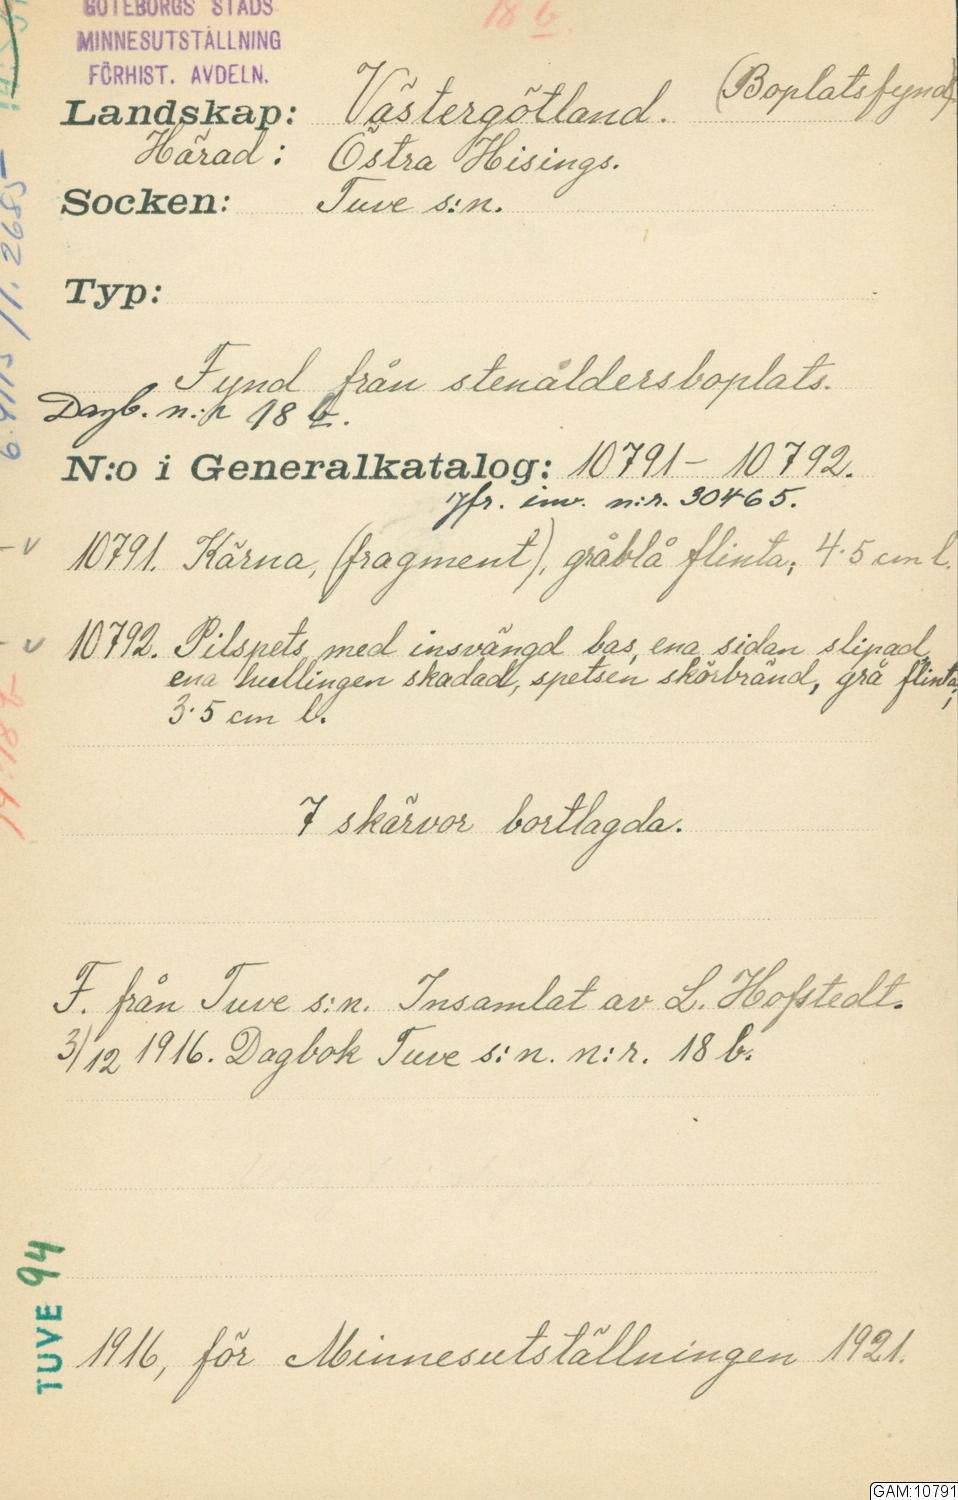 GÖTEBORGS STADS
MINNESUTSTÄLLNING
FÖRHIST. AVDELN.
18 b.
Landskap: Västergötland. (Boplatsfynd).
Härad: Östra Hisings.
Socken: Tuve s:n.
Typ:
Fynd från stenåldersboplats.
Dagb. n:r 18 b.
N:o i Generalkatalog: 10791 – 10792.
jfr. inv. n:r. 30465.
– v 10791. Kärna, (fragment), gråblå flinta; 4.5 cm l.
– v 10792. Pilspets med insvängd bas, ena sidan slipad,
ena hullingen skadad, spetsen skörbränd, grå flinta;
3.5 cm l.
7 skärvor bortlagda.
F. från Tuve s:n. Insamlat av L. Hofstedt.
3/12 1916. Dagbok Tuve s:n. n:r. 18 b.
1916, för Minnesutställningen 1921.
TUVE 94
19:18 b
GAM:10791